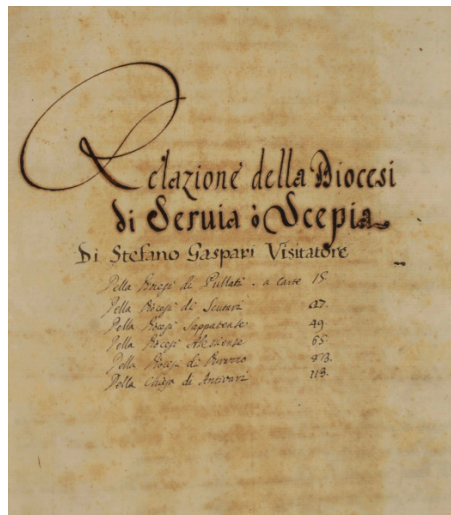 Relazione della Diocesi
di Seruia ò Scepia
Di Stefano Gaspari Visitatore
Della Diocesi di Pullati . a carte 15.
Della Diocesi di Scutari
Della Diocesi Sappatense 49
Della Diocesi Alessiense 65
Della Diocesi di Durazzo
Della Chiesa di Antivari 113.